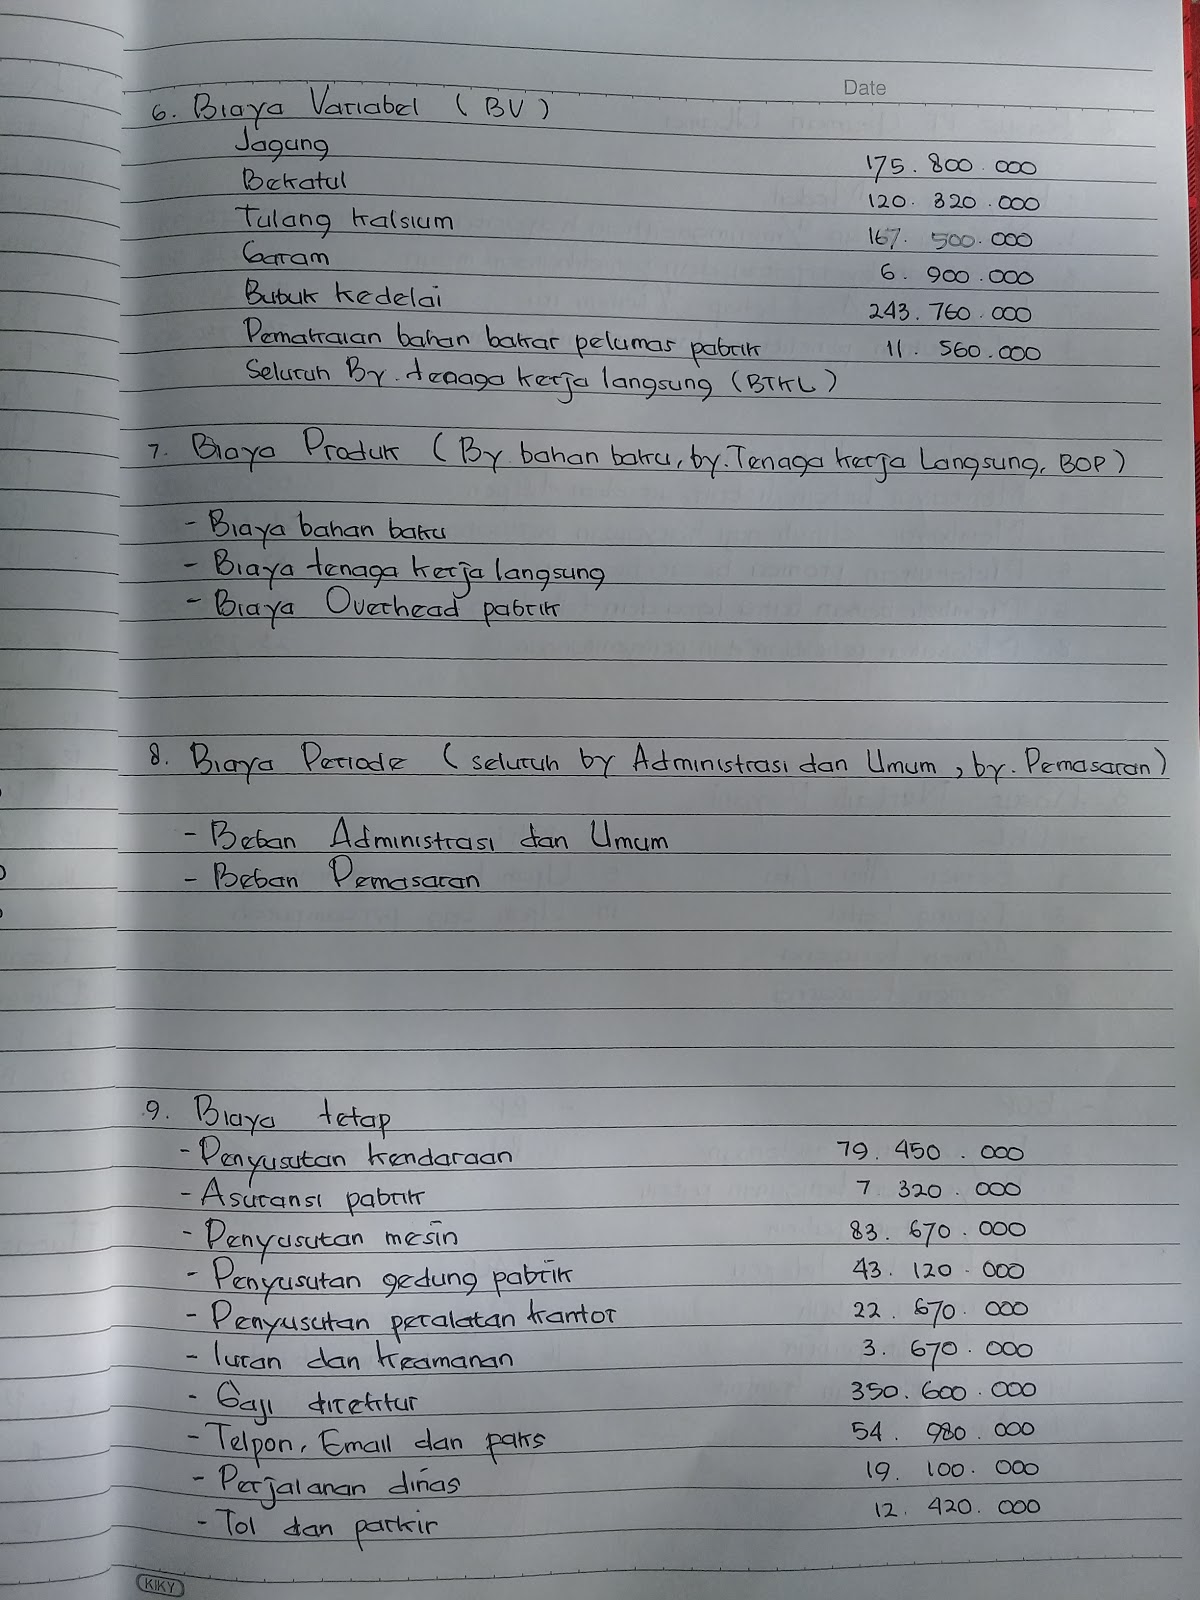 Date
6. Biaya Variabel ( BV )
Jagung 175. 800. 000
Bekatul 120. 320. 000
Tulang kalsium 167. 500. 000
Garam 6. 900. 000
Bubuk kedelai 243. 760. 000
Pemakaian bahan bakar pelumas pabrik 11. 560. 000
Seluruh By. tenaga kerja langsung (BTKL)
7. Biaya Produk ( By bahan baku, by. Tenaga kerja Langsung, BOP )
- Biaya bahan baku
- Biaya tenaga kerja langsung
- Biaya Overhead pabrik
8. Biaya Periode ( seluruh by Administrasi dan Umum, by. Pemasaran )
- Beban Administrasi dan Umum
- Beban Pemasaran
9. Biaya tetap
- Penyusutan kendaraan 79. 450. 000
- Asuransi pabrik 7 320. 000
- Penyusutan mesin 83. 670. 000
- Penyusutan gedung pabrik 43. 120. 000
- Penyusutan peralatan kantor 22. 670. 000
- Iuran dan keamanan 3. 670. 000
- Gaji direktur 350. 600. 000
- Telpon, Email dan paks 54. 980. 000
- Perjalanan dinas 19. 100. 000
- Tol dan parkir 12. 420. 000
KIKY